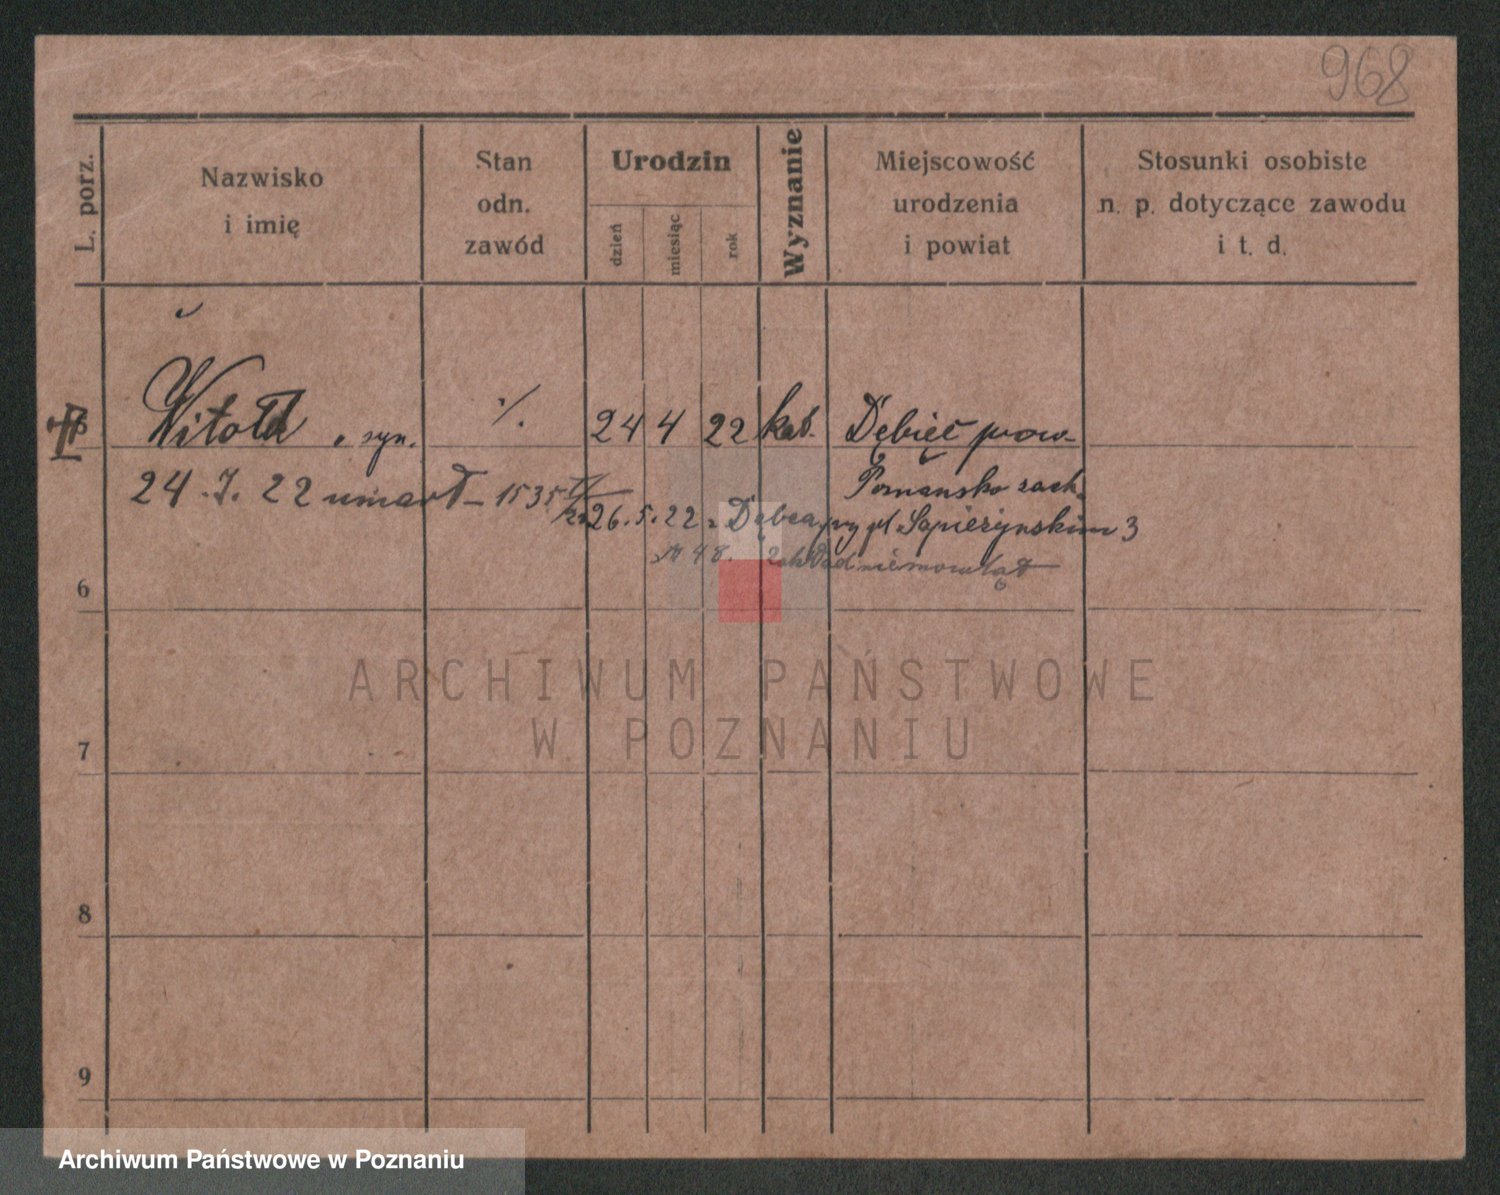 968
L. porz.
Nazwisko
i imię
Stan
odn.
zawód
Urodzin
dzień
miesiąc
rok
Wyznanie
Miejscowość
urodzenia
i powiat
Stosunki osobiste
n. p. dotyczące zawodu
i t. d.
Witold, syn. ·/. 24 4 22 kat. Dębiec pow.
24.7.22 umarł – 1535
26.5.22 z Dębca, pl. Sapieżyńskim 3
6
7
8
9
ARCHIWUM PAŃSTWOWE
W POZNANIU
Archiwum Państwowe w Poznaniu